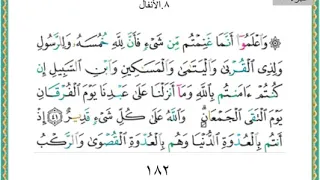 ٨.الأنفال
۞ وَٱعْلَمُوٓا۟ أَنَّمَا غَنِمْتُم مِّن شَىْءٍ فَأَنَّ لِلَّهِ خُمُسَهُۥ وَلِلرَّسُولِ
وَلِذِى ٱلْقُرْبَىٰ وَٱلْيَتَـٰمَىٰ وَٱلْمَسَـٰكِينِ وَٱبْنِ ٱلسَّبِيلِ إِن
كُنتُمْ ءَامَنتُم بِٱللَّهِ وَمَآ أَنزَلْنَا عَلَىٰ عَبْدِنَا يَوْمَ ٱلْفُرْقَانِ
يَوْمَ ٱلْتَقَى ٱلْجَمْعَانِ ۗ وَٱللَّهُ عَلَىٰ كُلِّ شَىْءٍ قَدِيرٌ ٤١ إِذْ
أَنتُم بِٱلْعُدْوَةِ ٱلدُّنْيَا وَهُم بِٱلْعُدْوَةِ ٱلْقُصْوَىٰ وَٱلرَّكْبُ
١٨٢